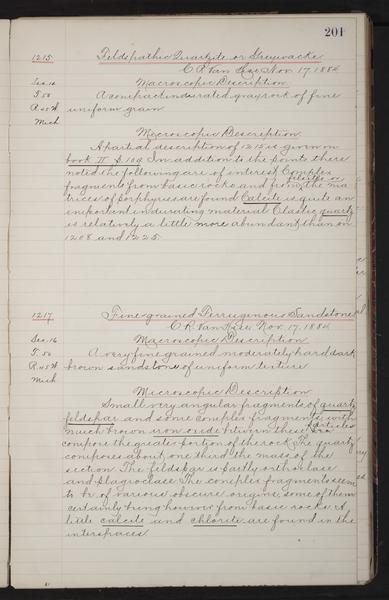 201
1215 Feldspathic Quartzite or Greywacke
C R Van Hise Nov. 17, 1884
Sec. 16 Macroscopic Description
T. 50 A semi-indurated gray rock of fine
R. 45 W uniform grain
Mich
Microscopic Description
A partial description of 1215 is given on
book II p. 109 In addition to the points there
noted the following are of interest. Complex
felsitic or
fragments from basic rocks and from the ma
trices of porphyries are found Calcite is quite an
important indurating material Clastic quartz
is relatively a little more abundant than in
1208 and 1225.
1217 Fine grained Ferrugenous Sandstone
C R Van Hise Nov. 17, 1884
Sec. 16 Macroscopic Description
T. 50 A very fine grained moderately hard dark
R. 45 W brown sandstone of uniform texture
Mich
Microscopic Description
Small very angular fragments of quartz
feldspar and some complex fragments with
much brown iron oxide between these particles
compose the greater portion of the rock. The quartz
composes about one third the mass of the
section. The feldspar is partly orthoclase
and plagioclase The complex fragments seem
to be of various obscure origins, some of them
certainly being however from basic rocks. A
little calcite and chlorite are found in the
interspaces